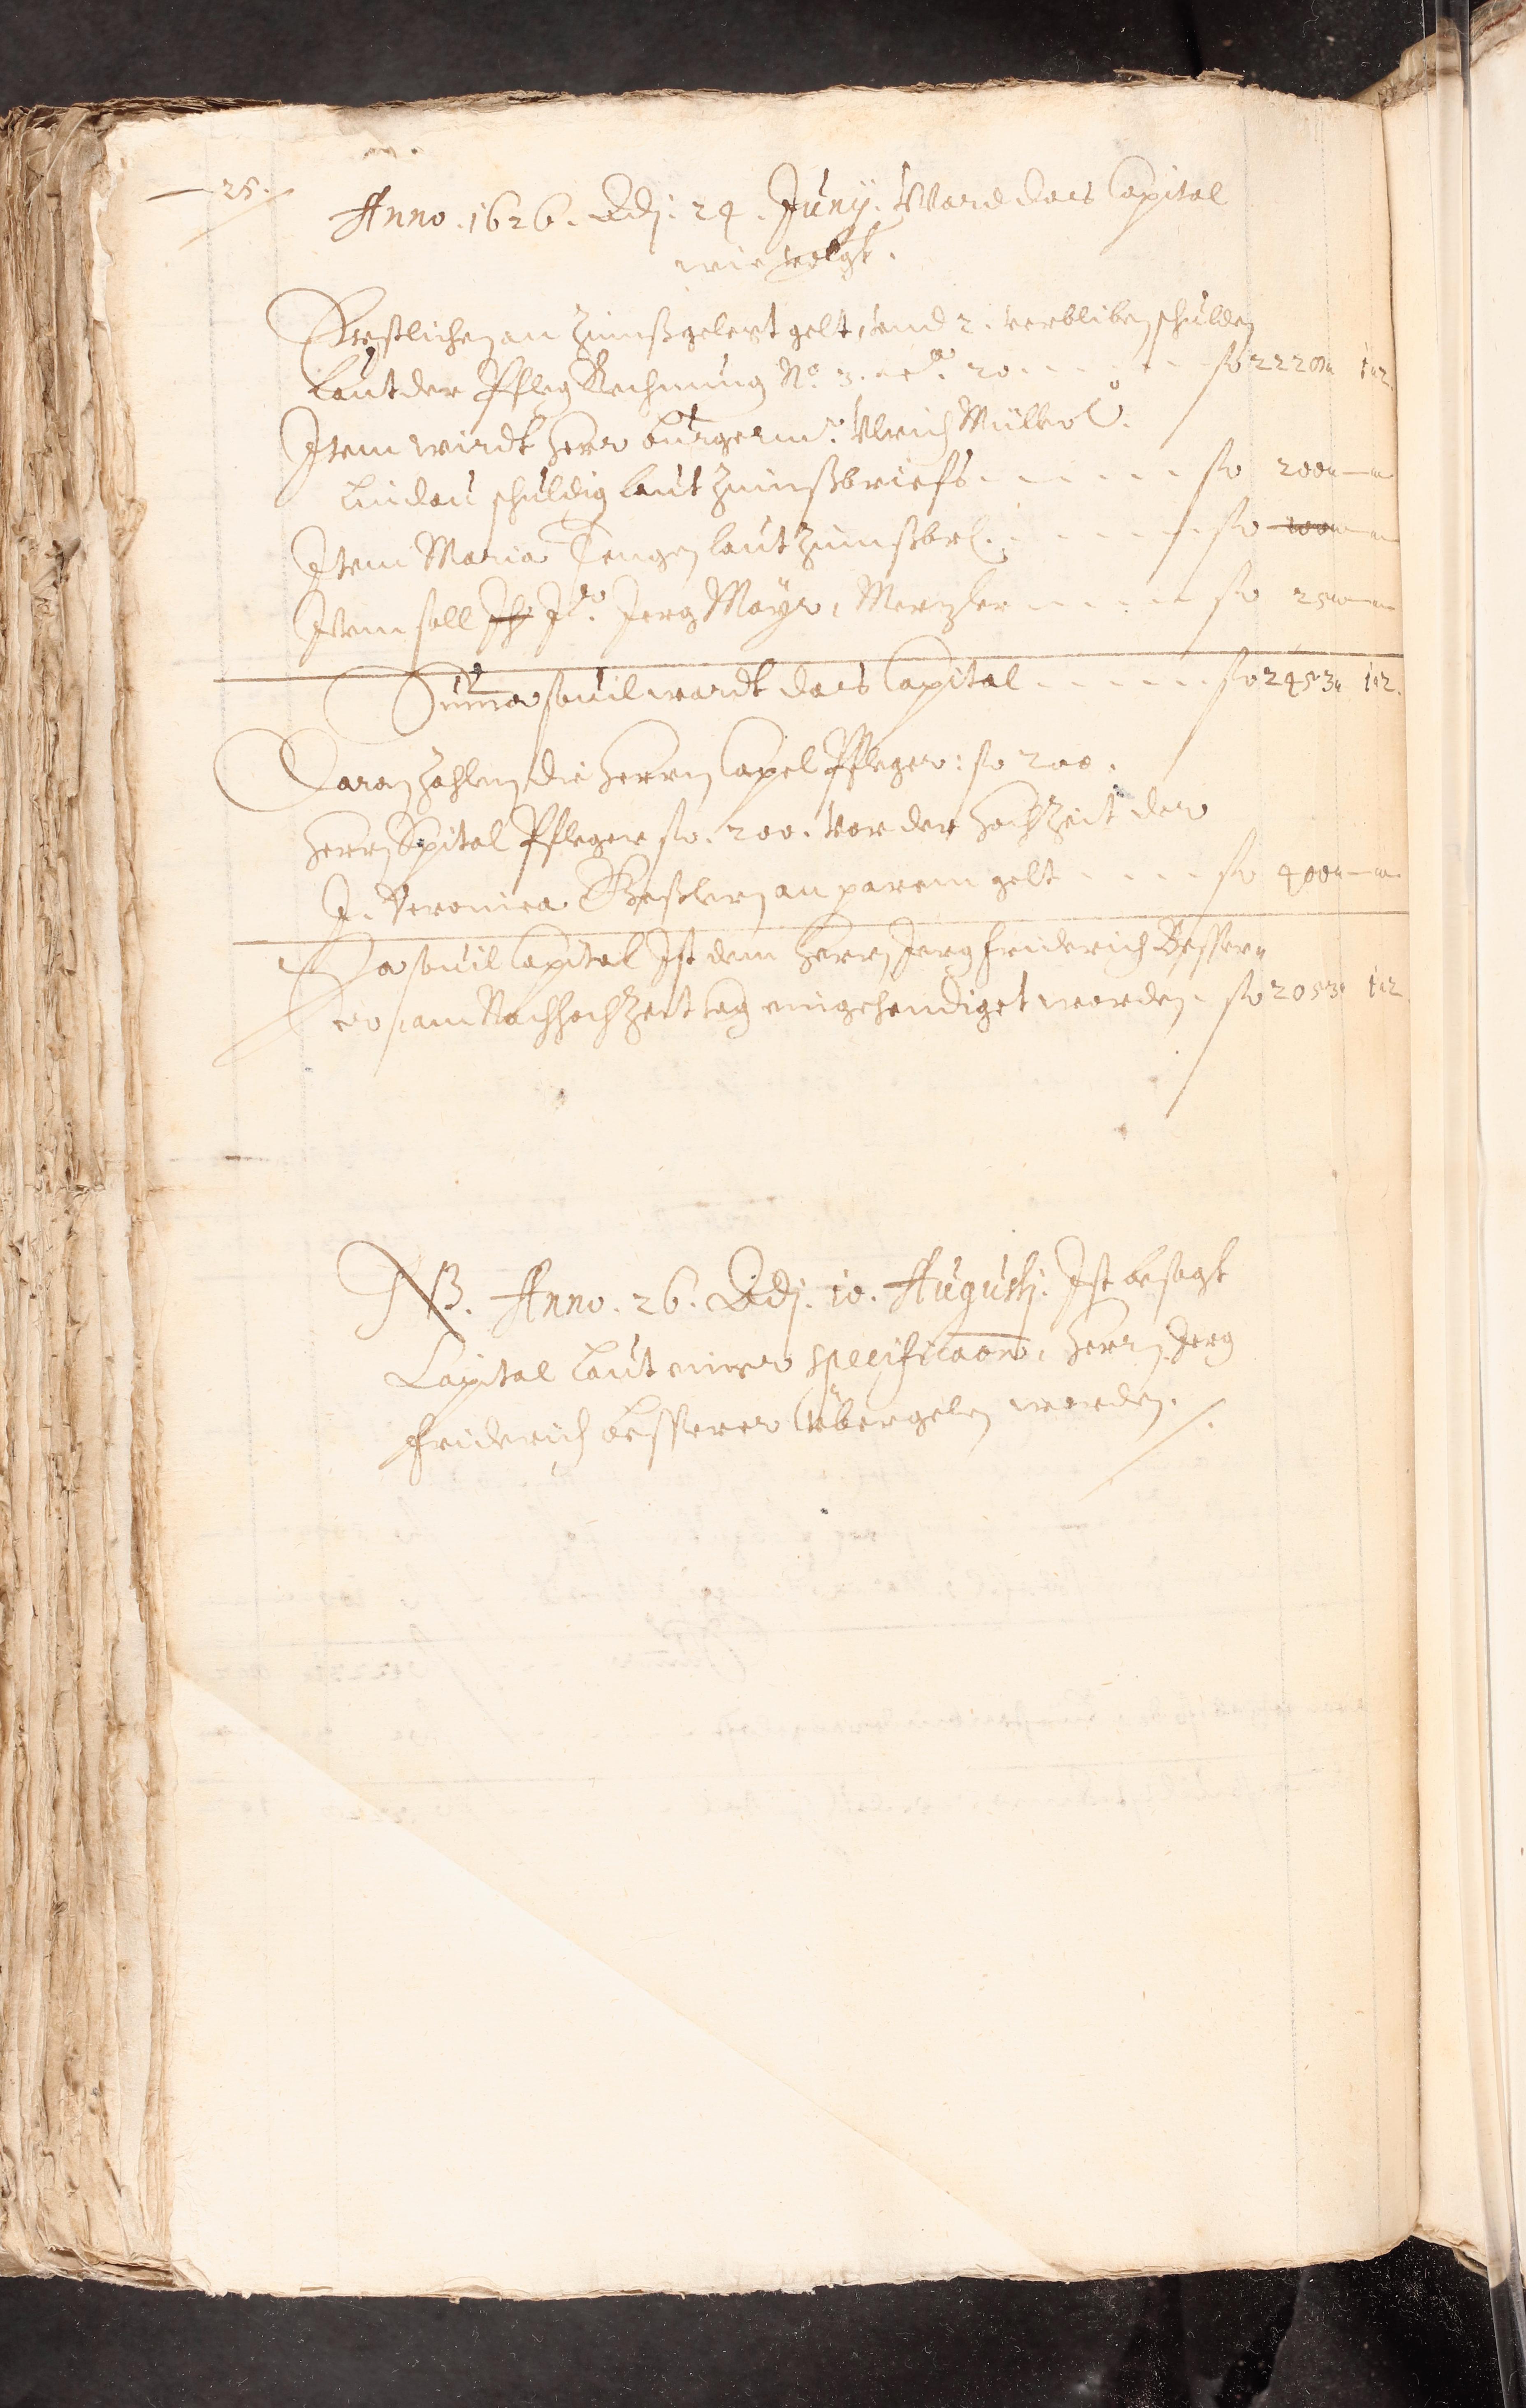 25.
Anno. 1626. Adj. 24. Junij. Ward das Capital
wie volgt.
Erstlichen an Zinnß gelert gelt, und 2. verbliben schulden
laut der Pfleg Rechnung No. 3. a Co. 20 - - - - - fl 2228 „ 1 „ 2.
Item wirdt Herr Burgerm.r Ulrich Müller
Lindau schuldig laut Zinnßbriefs - - - - - - fl 200 „ — „
Item Maria laut Zinnßbr. - - - - - fl 100 „ — „
Item soll Jr. Jerg Mayr, Metzler - - - - - fl 25 „ — „
Summa souil wardt das Capital - - - - - - fl 2453 „ 1 „ 2.
Daran zahlen die Herren Capel Pfleger: fl 200.
Herren Spital Pfleger fl. 200. vor der Hochzeit der
J. Veronica an parem gelt - - - - fl 400 „ — „
Ja souil Capital Ist dem Herren Jerg Friderich Besser„
er, am Nachhochzeit tag eingehendiget worden. fl 2053 „ 1 „ 2.
NB. Anno. 26. Adj. 10. Augustj. Ist besagt
Capital laut einer specification, Herren Jerg
Friderich Besserer übergeben worden.